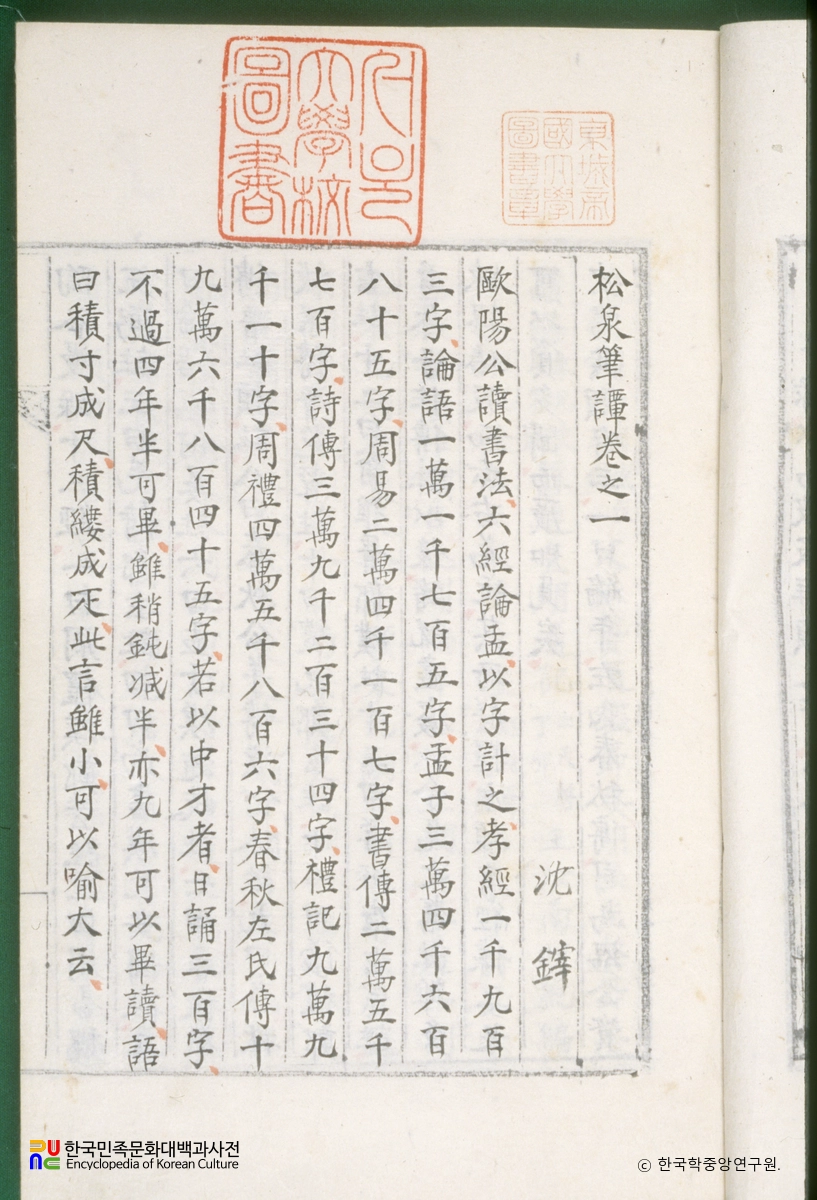 서울
大學校
圖書
京城帝
國大學
圖書章
松泉筆譚卷之一
沈鋅
歐陽公讀書法六經論孟以字計之孝經一千九百
三字論語一萬一千七百五字孟子三萬四千六百
八十五字周易二萬四千一百七字書傳二萬五千
七百字詩傳三萬九千二百三十四字禮記九萬九
千一十字周禮四萬五千八百六字春秋左氏傳十
九萬六千八百四十五字若以中才者日誦三百字
不過四年半可畢雖稍鈍减半亦九年可以畢讀語
曰積寸成尺積縷成疋此言雖小可以喻大云
한국민족문화대백과사전
Encyclopedia of Korean Culture
© 한국학중앙연구원.